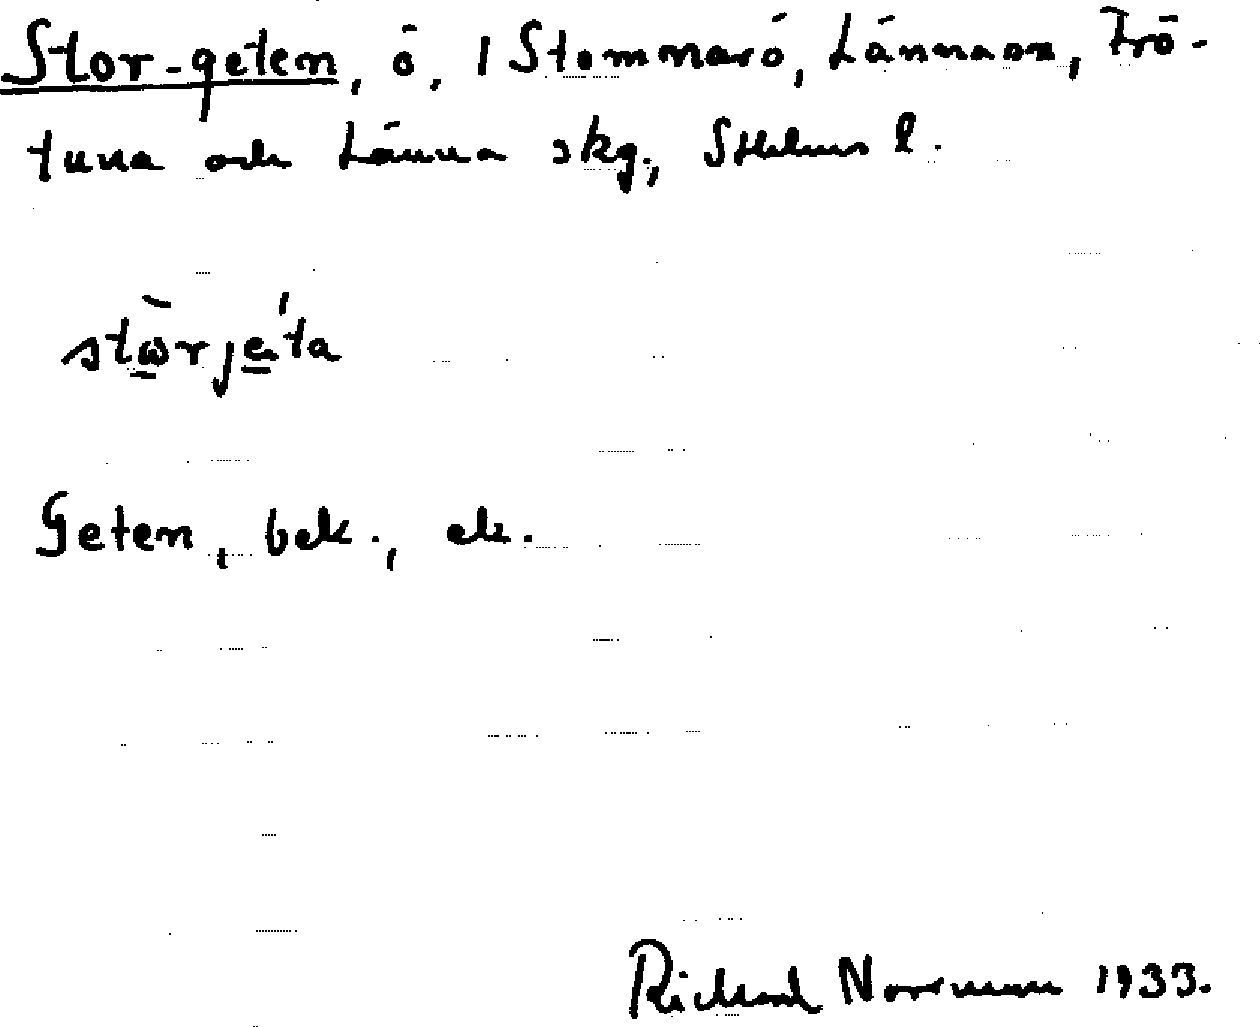 Stor-geten, ö, i Stommarö, Länna sn, Frö-
tuna och Länna skg, Sthlms l.
stω̲rje̲ta
Geten, bek., ek.
Richard Norrman 1933.